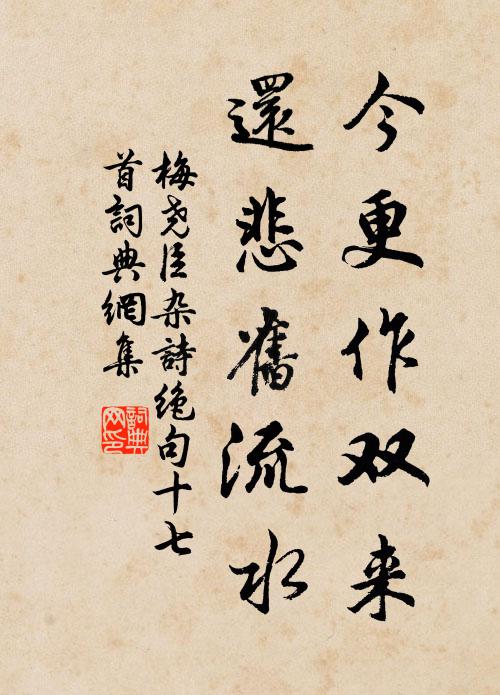 今更作双来
還悲舊流水
梅尧臣杂詩绝句十七
首詞典網集
詞典
网印